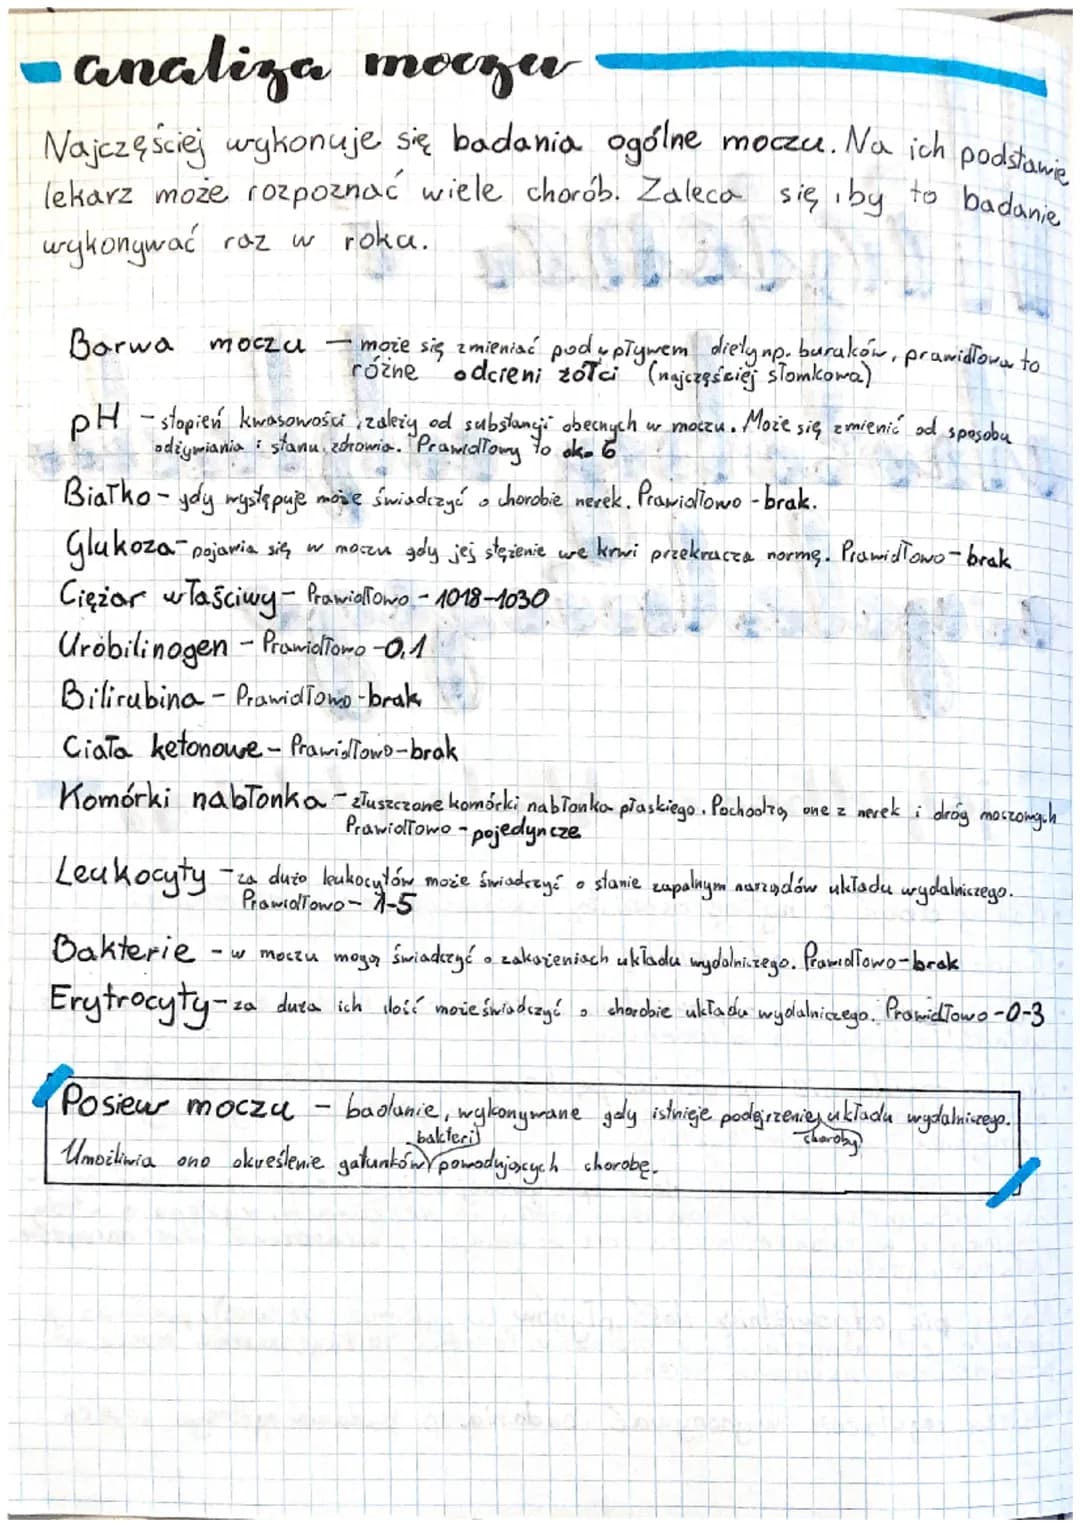 analiza moczu
Najczęściej wykonuje się badania ogólne moczu. Na ich podstawie
lekarz może rozpoznać wiele chorób. Zaleca się, by to badanie
wykonywać raz w roku.
Barwa moczu – może się zmieniać pod wpływem diety np. buraków, prawidłowa to
różne odcieni żółci (najczęściej słomkowa)
pH – stopień kwasowości, zależy od substancji obecnych w moczu. Może się zmienić od sposobu
odżywiania i stanu zdrowia. Prawidłowy to ok. 6
Białko – gdy występuje może świadczyć o chorobie nerek. Prawidłowo – brak.
Glukoza – pojawia się w moczu gdy jej stężenie we krwi przekracza normę. Prawidłowo – brak
Ciężar właściwy – Prawidłowo – 1018-1030
Urobilinogen – Prawidłowo – 0,1
Bilirubina – Prawidłowo – brak
Ciała ketonowe – Prawidłowo – brak
Komórki nabłonka – złuszczone komórki nabłonka płaskiego. Pochodzą one z nerek i dróg moczowych
Prawidłowo – pojedyncze
Leukocyty – za dużo leukocytów może świadczyć o stanie zapalnym narządów układu wydalniczego.
Prawidłowo – 1-5
Bakterie – w moczu mogą świadczyć o zakażeniach układu wydalniczego. Prawidłowo – brak
Erytrocyty – za duża ich ilość może świadczyć o chorobie układu wydalniczego. Prawidłowo – 0-3
Posiew moczu – badanie, wykonywane gdy istnieje podejrzenie choroby układu wydalniczego.
Umożliwia ono określenie gatunków bakterii powodujących chorobę.